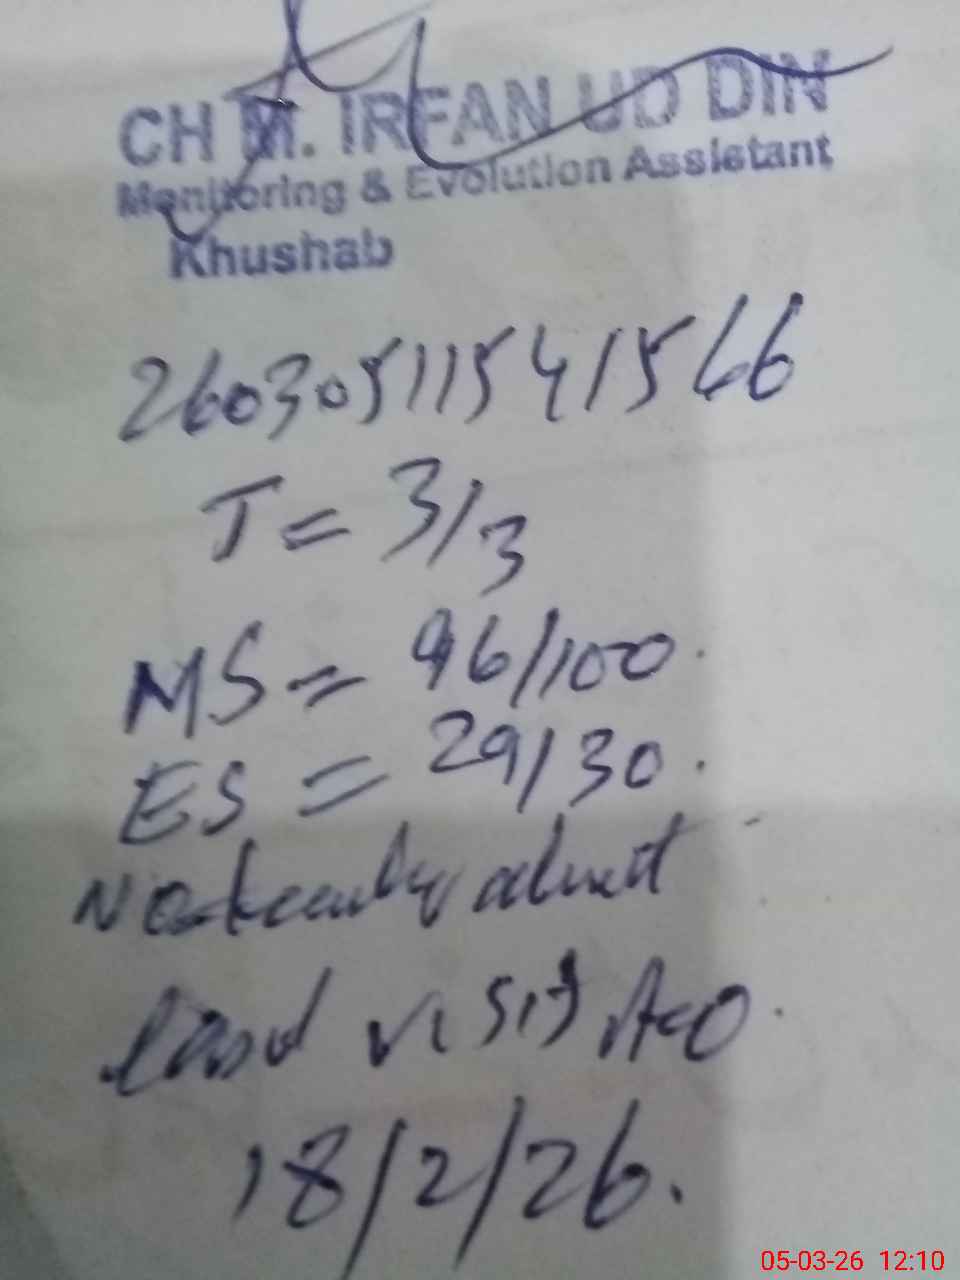 CH M. IRFAN UD DIN
Monitoring & Evolution Assistant
Khushab
2603051154 1566
T = 3/3
MS = 96/100.
ES = 29/30.
No
visit AEO.
18/2/26.
05-03-26 12:10